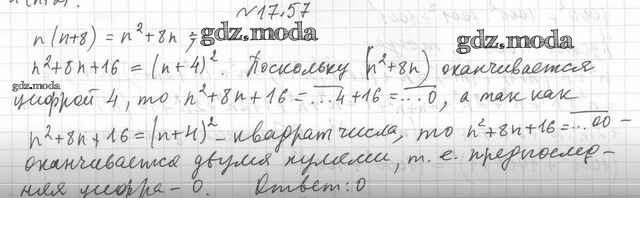 №17.57
n(n+8) = n²+8n ; gdz.moda
gdz.moda
n²+8n+16 = (n+4)². Поскольку (n²+8n) оканчивается
gdz.moda
цифрой 4, то n²+8n+16 = ...4+16 = ...0, а так как
n²+8n+16 = (n+4)² – квадрат числа, то n²+8n+16 = ...00 –
оканчивается двумя нулями, т. е. предпослед-
няя цифра – 0. Ответ: 0